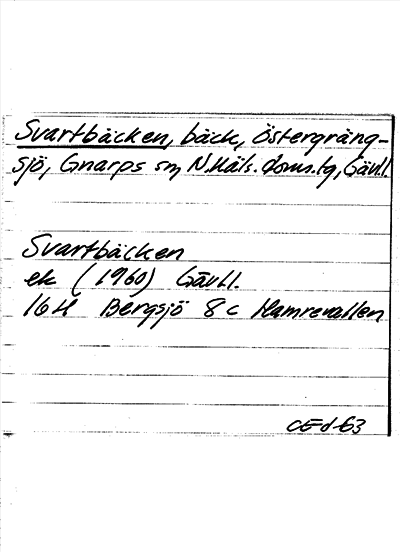 Svartbäcken, bäck, Östergräng-
sjö, Gnarps sn, N.Häls. doms.tg, Gävl.l.
Svartbäcken
ek (1960) Gävl.l.
16H Bergsjö 8c Hamrevallen
CEd-63